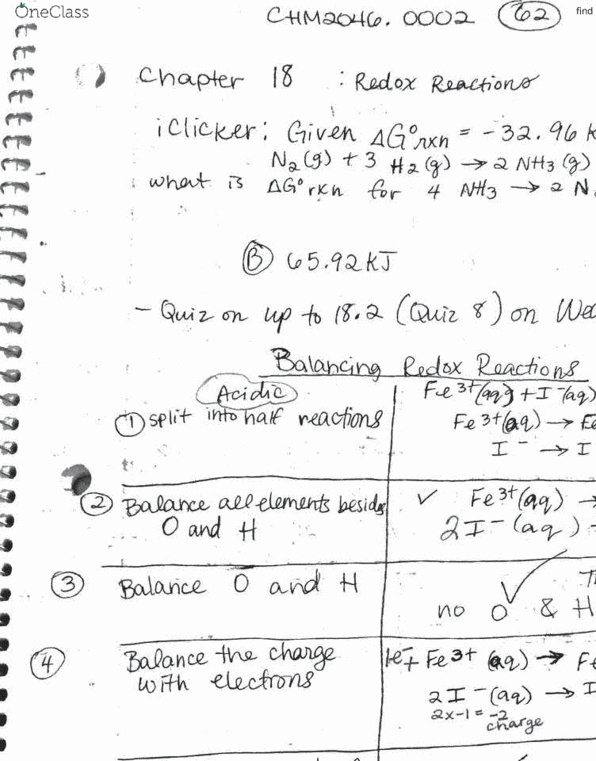 OneClass
CHM2046.0002 62 find
Chapter 18 : Redox Reactions
iClicker: Given ΔG°rxn = -32.96 k
N2(g) + 3 H2(g) → 2 NH3(g)
what is ΔG°rxn for 4 NH3 → 2 N
B 65.92 KJ
- Quiz on up to 18.2 (Quiz 8) on Wed
Balancing Redox Reactions
Acidic
Fe3+(aq) + I-(aq)
① split into half reactions
Fe3+(aq) → Fe
I- → I
② Balance all elements besides
O and H
✓ Fe3+(aq) →
2I-(aq)
③ Balance O and H
no O & H
④ Balance the charge
with electrons
1e- + Fe3+(aq) → Fe
2I-(aq) → I
2x-1 = -2
charge